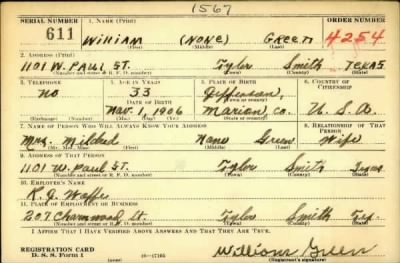 1567
SERIAL NUMBER 1. NAME (Print) ORDER NUMBER
611 William (NONE) GREEN 4254
(First) (Middle) (Last)
2. ADDRESS (Print)
1101 W. PAUL ST. Tyler Smith TEXAS
(Number and street or R. F. D. number) (Town) (County) (State)
3. TELEPHONE 4. AGE IN YEARS 5. PLACE OF BIRTH 6. COUNTRY OF CITIZENSHIP
no 33 Jefferson
DATE OF BIRTH (Town or county)
Nov. 1, 1906 Marion Co. U. S. A.
(Exchange) (Number) (Mo.) (Day) (Yr.) (State or country)
7. NAME OF PERSON WHO WILL ALWAYS KNOW YOUR ADDRESS 8. RELATIONSHIP OF THAT PERSON
Mrs. Mildred None Green Wife
(Mr., Mrs., Miss) (First) (Middle) (Last)
9. ADDRESS OF THAT PERSON
1101 W. Paul ST. Tyler Smith Texas
(Number and street or R. F. D. number) (Town) (County) (State)
10. EMPLOYER'S NAME
R. J.
11. PLACE OF EMPLOYMENT OR BUSINESS
207 Charnwood St. Tyler Smith Tex.
(Number and street or R. F. D. number) (Town) (County) (State)
I AFFIRM THAT I HAVE VERIFIED ABOVE ANSWERS AND THAT THEY ARE TRUE.
REGISTRATION CARD
D. S. S. Form 1 16—17105 William Green
(over) (Registrant's signature)